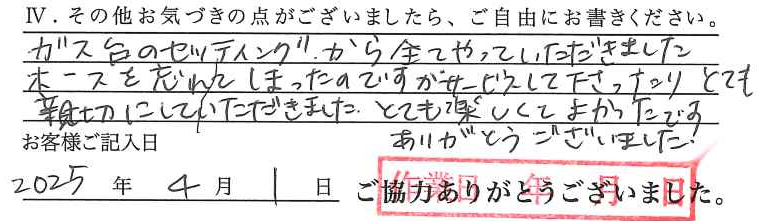 Ⅳ．その他お気づきの点がございましたら、ご自由にお書きください。
ガス台のセッティングから全てやっていただきました
ホースを忘れてしまったのですがサービスして下さったり とても
親切にしていただきました. とても楽しくてよかったです
ありがとうございました.
お客様ご記入日
2025 年 4 月 1 日 ご協力ありがとうございました。
作業日 年 月 日